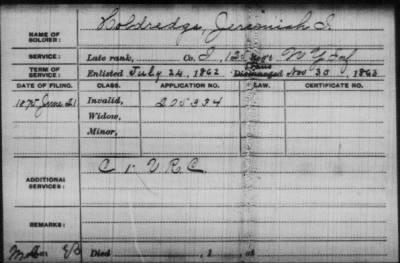 NAME OF SOLDIER: Holdredge, Jeremiah S.
SERVICE: Late rank, Co. I, 125 Reg't N Y Inf
TERM OF SERVICE: Enlisted July 24, 1862 Discharged Trans Nov 30, 1863
DATE OF FILING. CLASS. APPLICATION NO. LAW. CERTIFICATE NO.
1875 June 21 Invalid, 205334
Widow,
Minor,
ADDITIONAL SERVICES: C 1. V R C
REMARKS:
Died , 1 , at